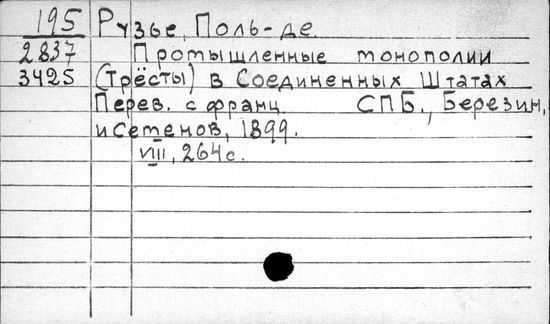 195 Рузье, Поль-де.
2837 Промышленные монополии
3425 (Трёсты) в Соединенных Штатах
Перев. с франц. СПБ., Березин,
и Семенов, 1899.
VIII, 264 с.